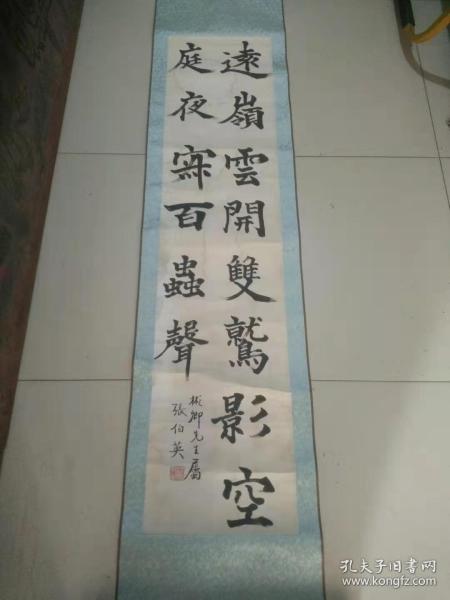 遠嶺雲開雙鷲影空
庭夜寂百蟲聲
彬卿先生屬
張伯英
孔夫子旧书网
www.kongfz.com